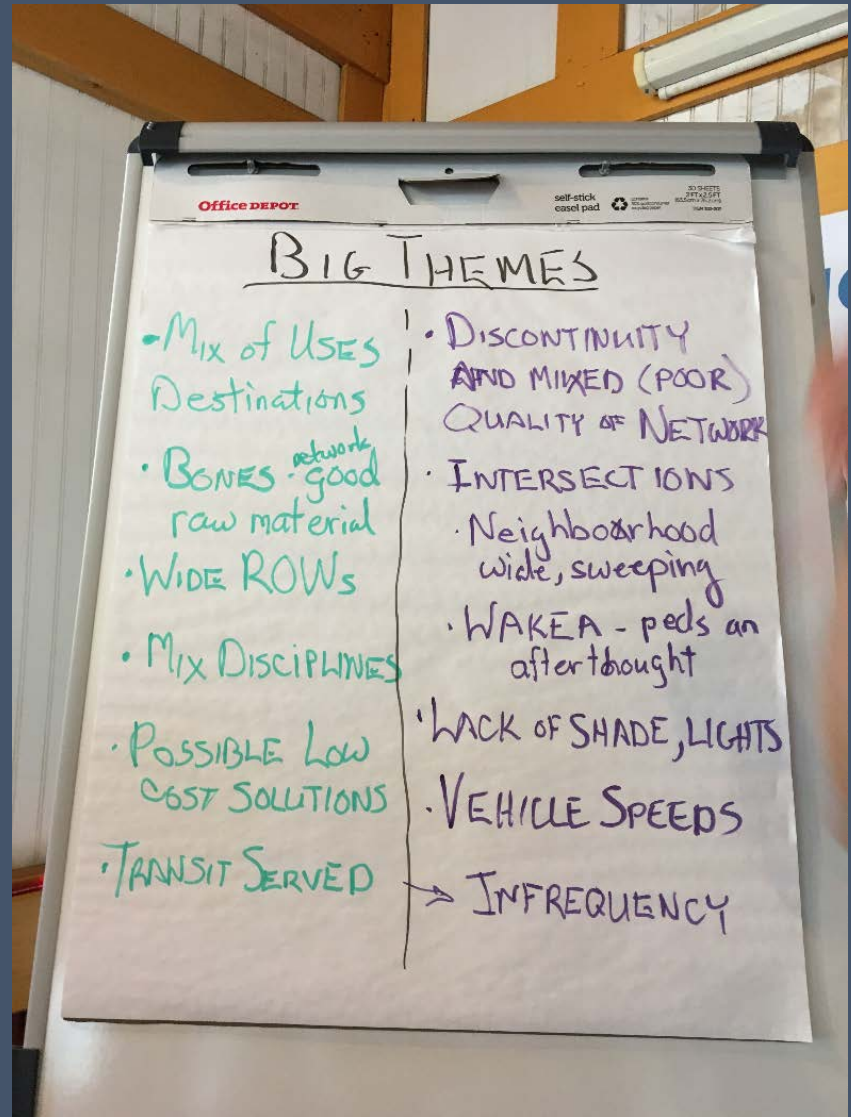 Office DEPOT
self-stick
easel pad
30 SHEETS
BIG THEMES
·Mix of Uses
Destinations
·BONES · network good
raw material
·WIDE ROWs
·MIX DISCIPLINES
·POSSIBLE LOW
COST SOLUTIONS
·TRANSIT SERVED
·DISCONTINUITY
AND MIXED (POOR)
QUALITY OF NETWORK
·INTERSECTIONS
·Neighboorhood
wide, sweeping
·WAKEA - peds an
afterthought
·LACK OF SHADE, LIGHTS
·VEHICLE SPEEDS
→ INFREQUENCY